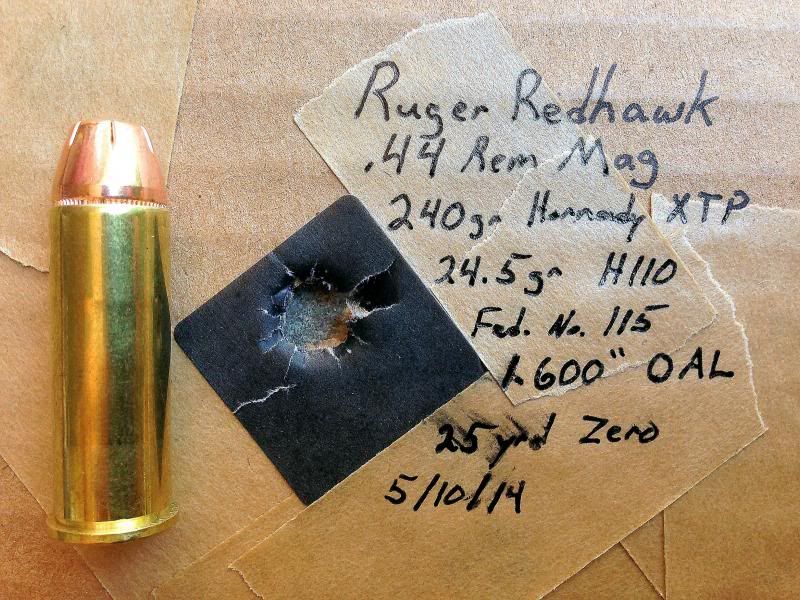 Ruger Redhawk
.44 Rem Mag
240gr Hornady XTP
24.5gr H110
Fed. No. 115
1.600" OAL
25 yrd Zero
5/10/14